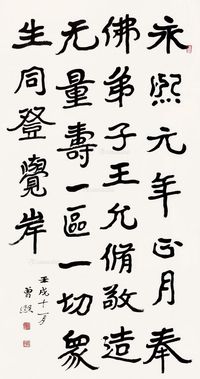 永熙元年正月奉
佛弟子王允脩敬造
无量壽一區一切眾
生同登覺岸
壬戌十一月
曾澂